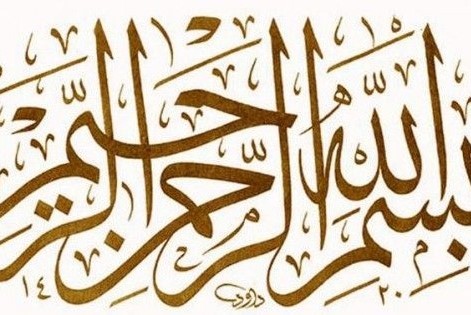 بسم الله الرحمن الرحيم
داود